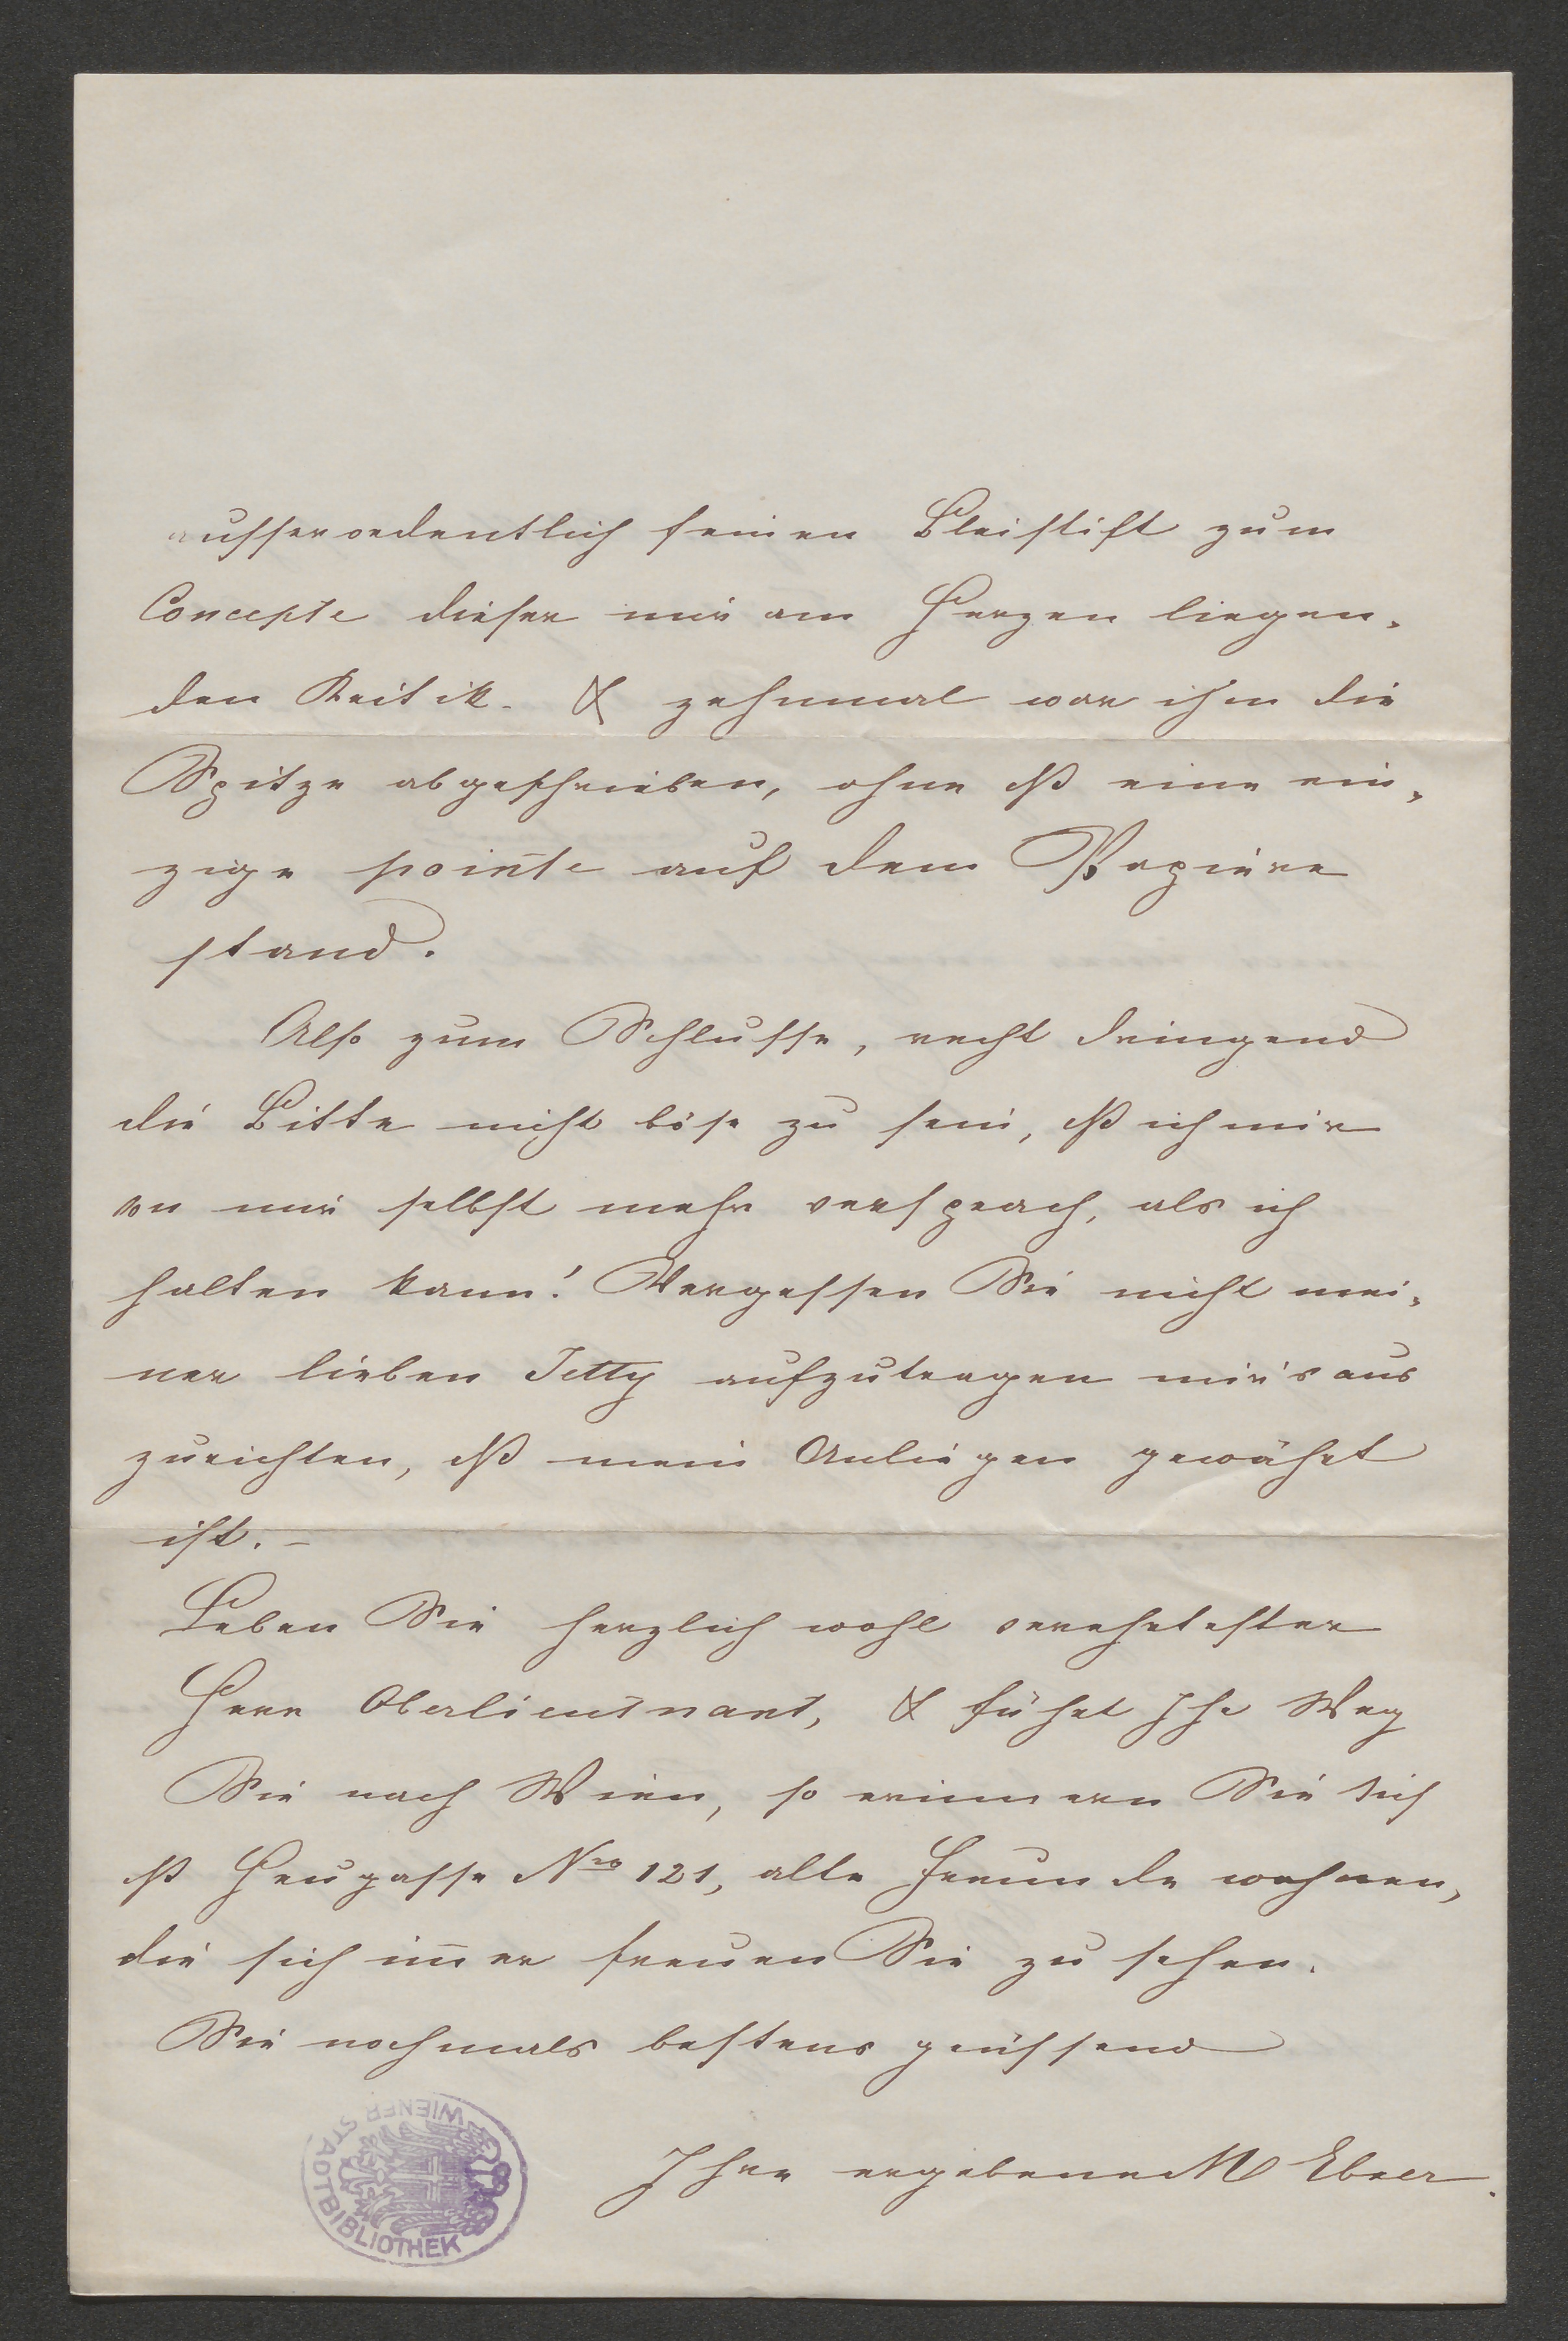 ausserordentlich feinen Bleistift zum
Concepte dieser mir am Herzen liegen-
den Kritik. & zehnmal war ihm die
Spitze abgeschrieben, ohne dß eine ein-
zige pointe auf dem Papiere
stand.
Also zum Schlusse, recht dringend
die Bitte nicht böse zu sein, dß ich mir
von mir selbst mehr versprach, als ich
halten kann! Vergessen Sie nicht mei-
ner lieben Jetty aufzutragen mir's aus
zurichten, dß mein Anliegen gewährt
ist. –
Leben Sie herzlich wohl verehrtester
Herr Oberlieutnant, & führt Ihr Weg
Sie nach Wien, so erinnern Sie sich
dß Heugasse Nro 121, alte Freunde wohnen,
die sich im̄er freuen Sie zu sehen.
Sie nochmals bestens grüssend
Ihre ergebene M Ebner.
WIENER STADTBIBLIOTHEK